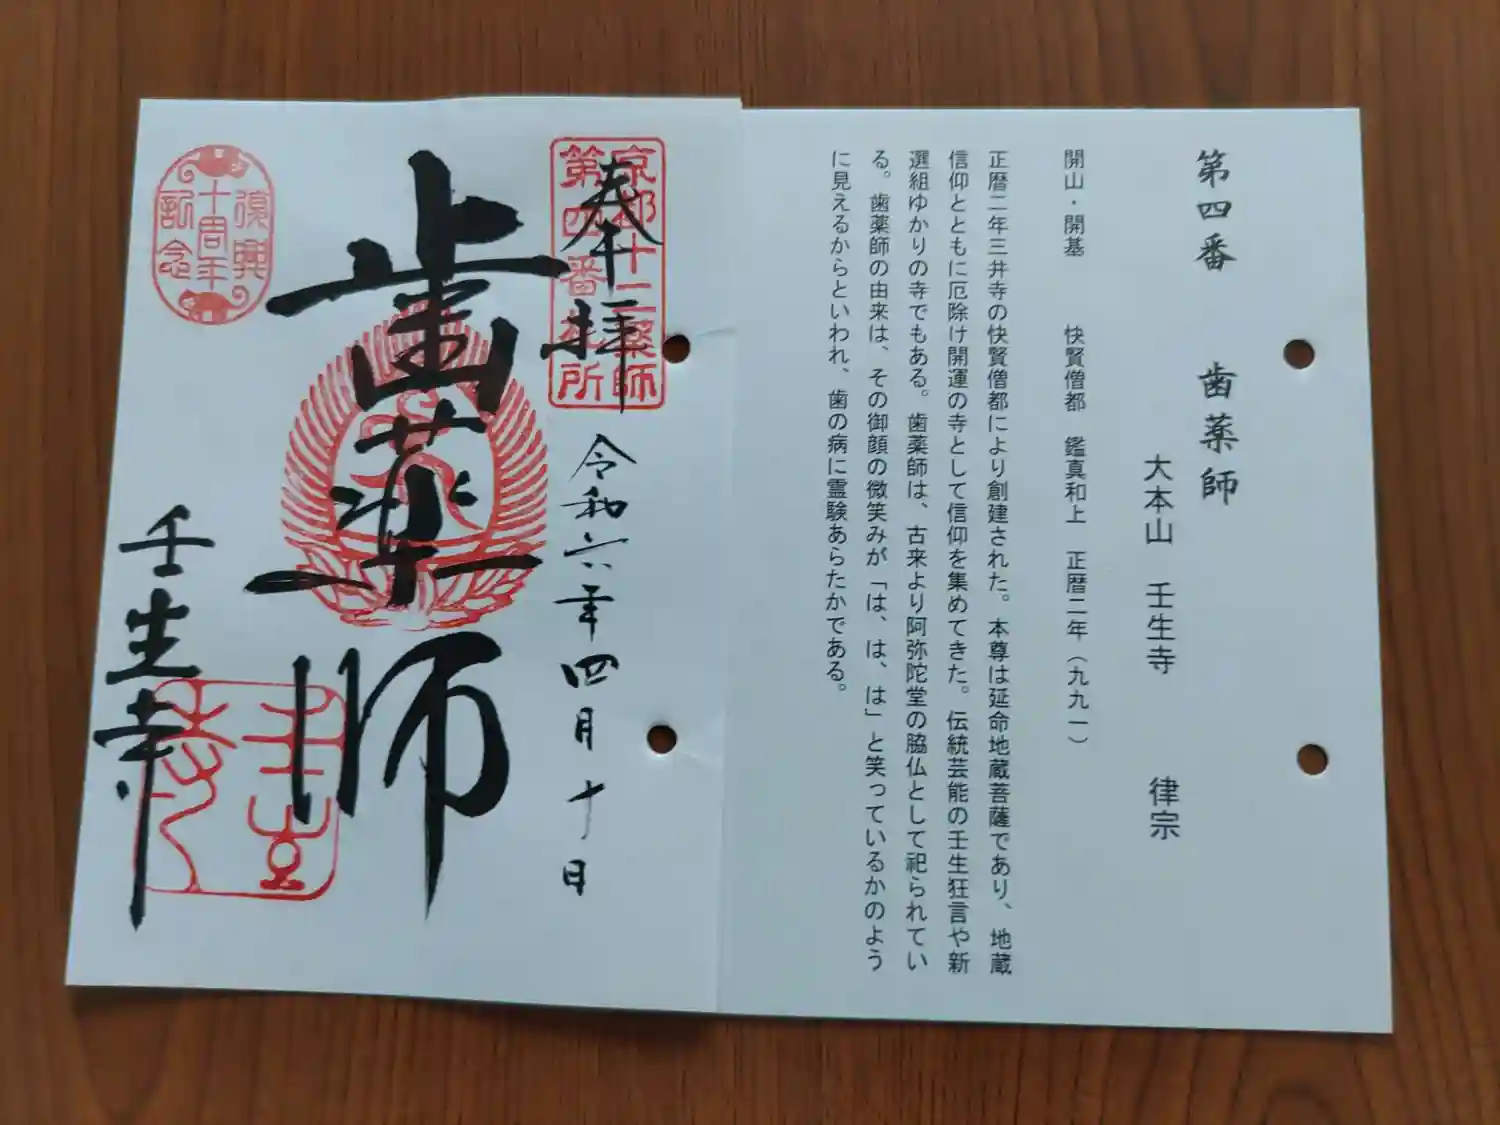 第四番 歯薬師
大本山 壬生寺 律宗
開山・開基 快賢僧都 鑑真和上 正暦二年(九九一)
正暦二年三井寺の快賢僧都により創建された。本尊は延命地蔵菩薩であり、地蔵
信仰とともに厄除け開運の寺として信仰を集めてきた。伝統芸能の壬生狂言や新
選組ゆかりの寺でもある。歯薬師は、古来より阿弥陀堂の脇仏として祀られてい
る。歯薬師の由来は、その御顔の微笑みが「は、は、は」と笑っているかのよう
に見えるからといわれ、歯の病に霊験あらたかである。
京都十二薬師
第四番札所
奉拝
令和六年四月十日
歯薬師
壬生寺
復興
十周年
記念